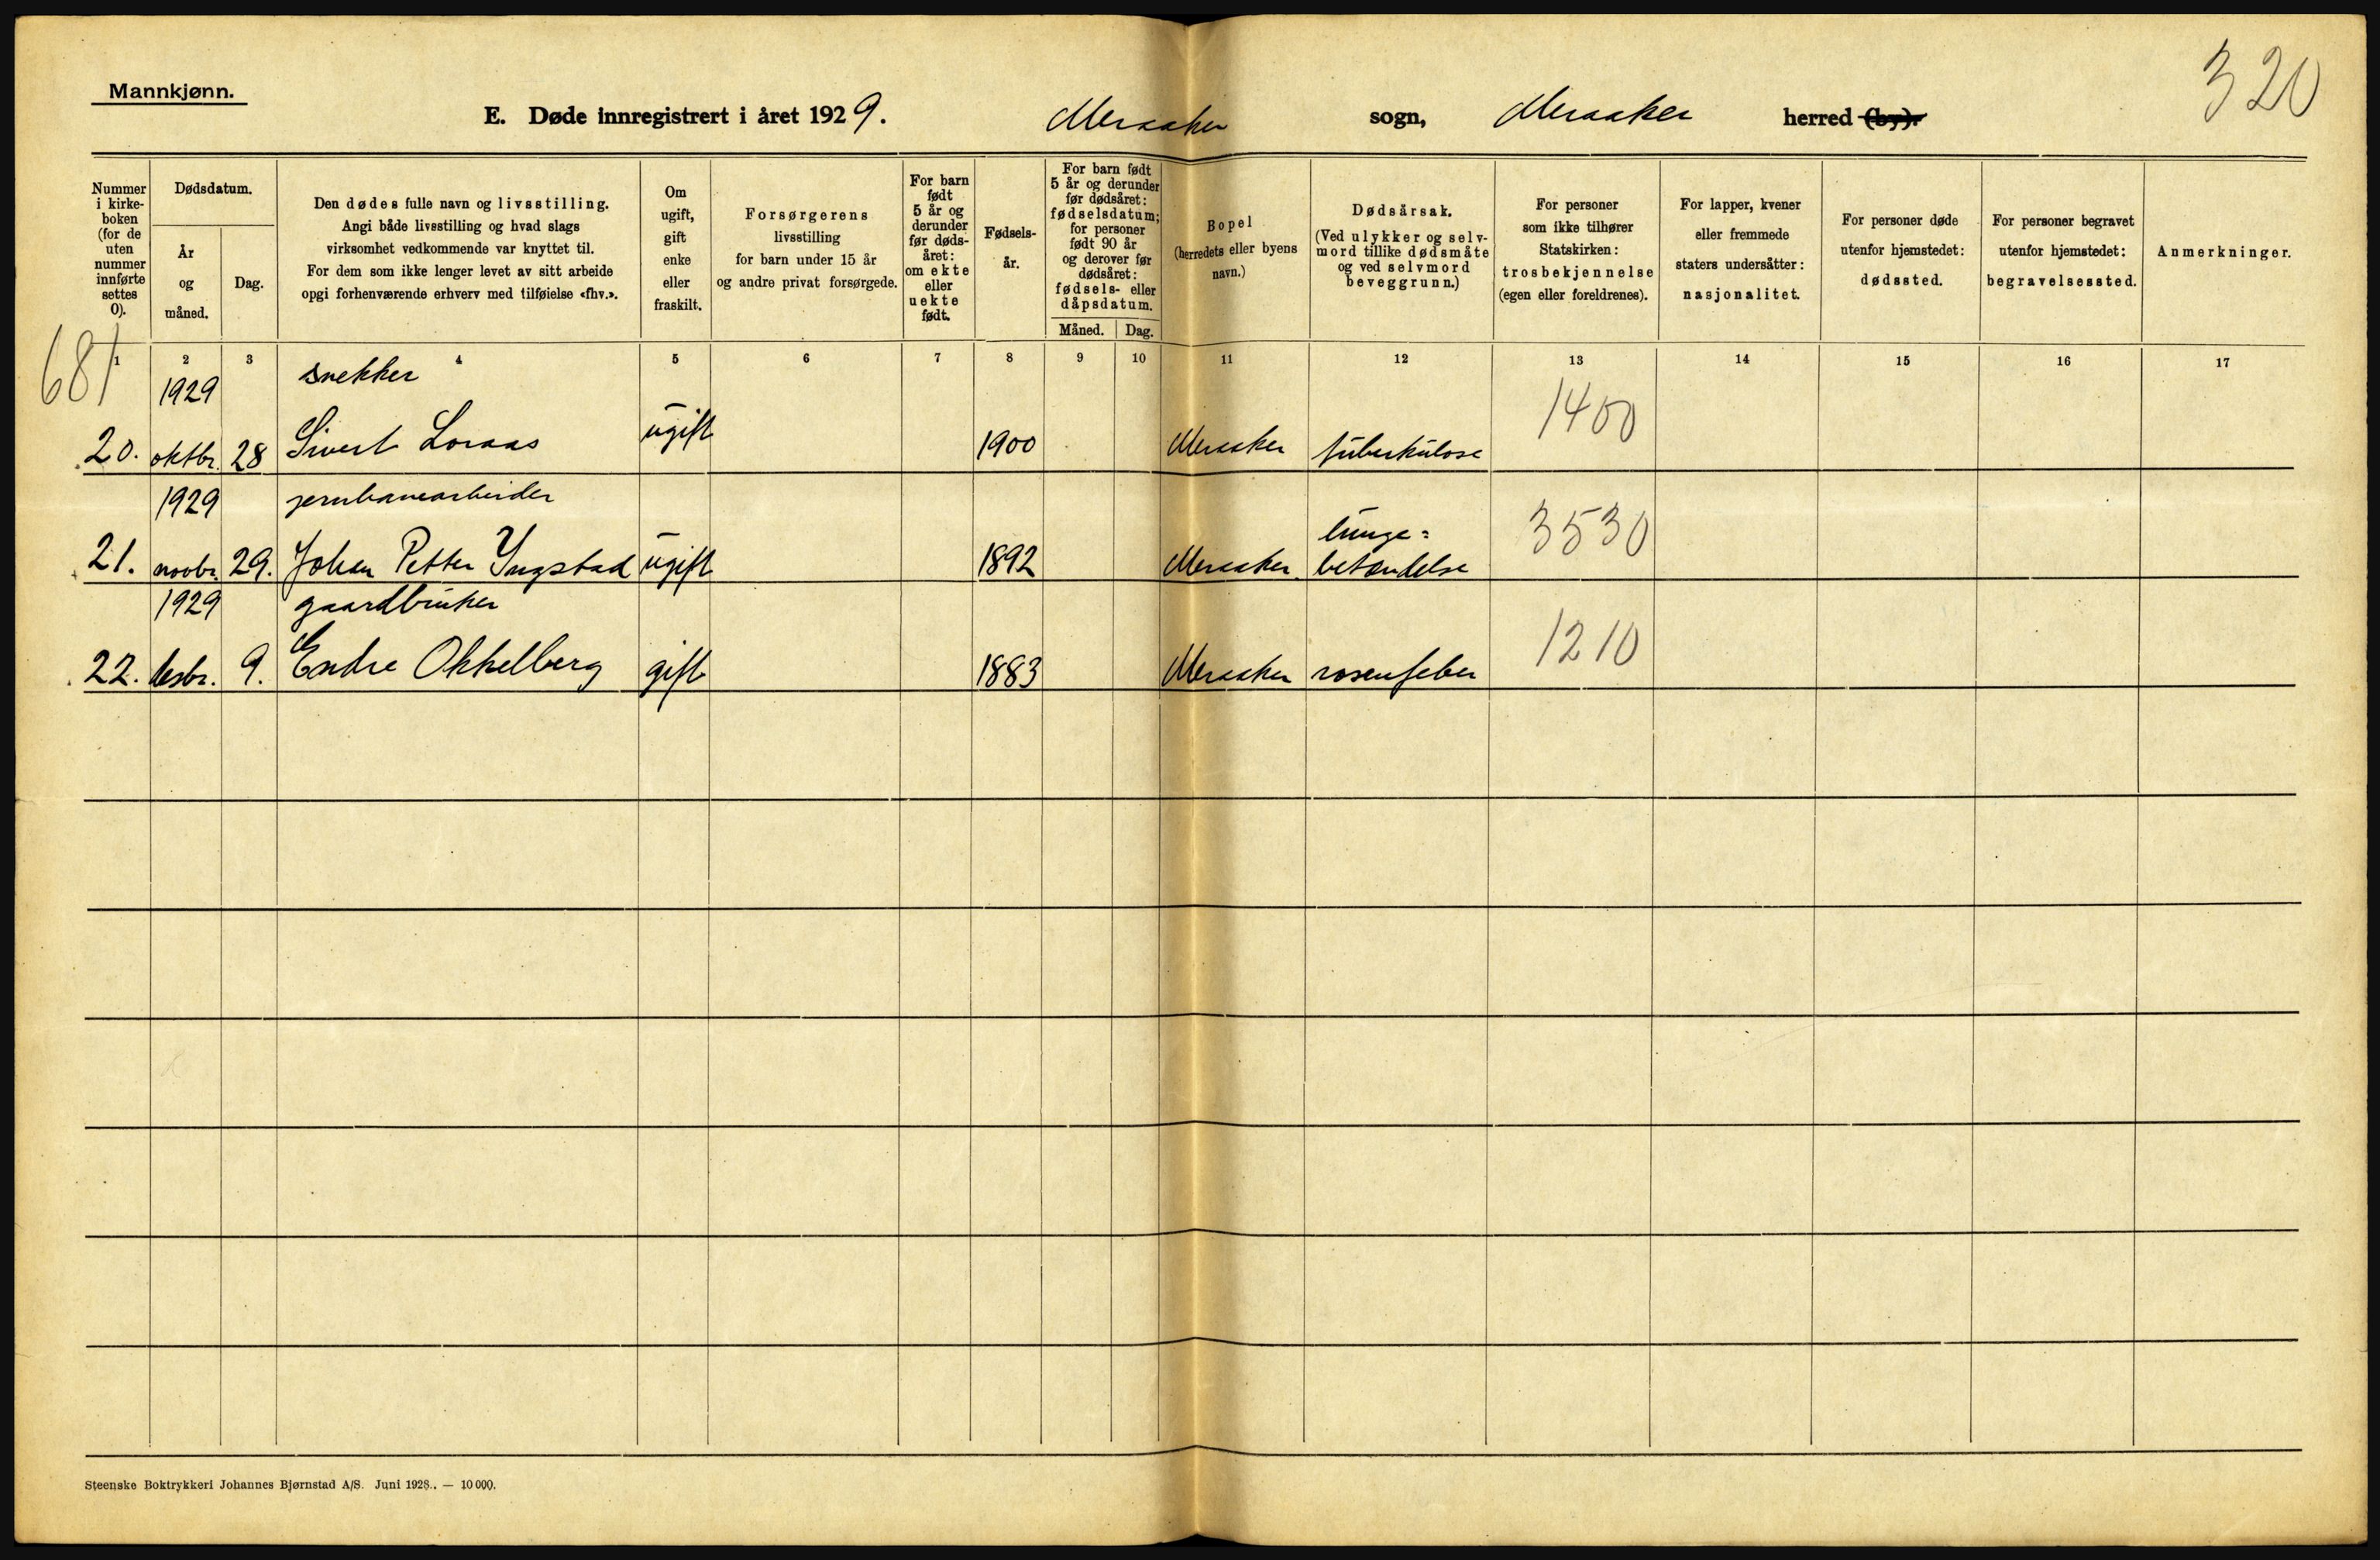 Mannkjønn.
320
E. Døde innregistrert i året 1929. Meraaker sogn, Meraaker herred (by).
Nummer
i kirke-
boken
(for de
uten
nummer
innførte
settes
0).
Dødsdatum.
År
og
måned.
Dag.
Den dødes fulle navn og livsstilling.
Angi både livsstilling og hvad slags
virksomhet vedkommende var knyttet til.
For dem som ikke lenger levet av sitt arbeide
opgi forhenværende erhverv med tilføielse «fhv.».
Om
ugift,
gift
enke
eller
fraskilt.
Forsørgerens
livsstilling
for barn under 15 år
og andre privat forsørgede.
For barn
født
5 år og
derunder
før døds-
året:
om ekte
eller
uekte
født.
Fødsels-
år.
For barn født
5 år og derunder
før dødsåret:
fødselsdatum;
for personer
født 90 år
og derover før
dødsåret:
fødsels- eller
dåpsdatum.
Måned. Dag.
Bopel
(herredets eller byens
navn.)
Dødsårsak.
(Ved ulykker og selv-
mord tillike dødsmåte
og ved selvmord
beveggrunn.)
For personer
som ikke tilhører
Statskirken:
trosbekjennelse
(egen eller foreldrenes).
For lapper, kvener
eller fremmede
staters undersåtter:
nasjonalitet.
For personer døde
utenfor hjemstedet:
dødssted.
For personer begravet
utenfor hjemstedet:
begravelsessted.
Anmerkninger.
1 2 3 4 5 6 7 8 9 10 11 12 13 14 15 16 17
681
1929 snekker
20. oktbr. 28 Sivert Loraas ugift 1900 Meraaker tuberkulose 1400
1929 jernbanearbeider
lunge=
21. novbr. 29. Johan Petter Yngstad ugift 1892 Meraaker betændelse 3530
1929 gaardbruker
22. desbr. 9. Endre Okkelberg gift 1883 Meraaker rosenfeber 1210
Steenske Boktrykkeri Johannes Bjørnstad A/S. Juni 1928. — 10 000.